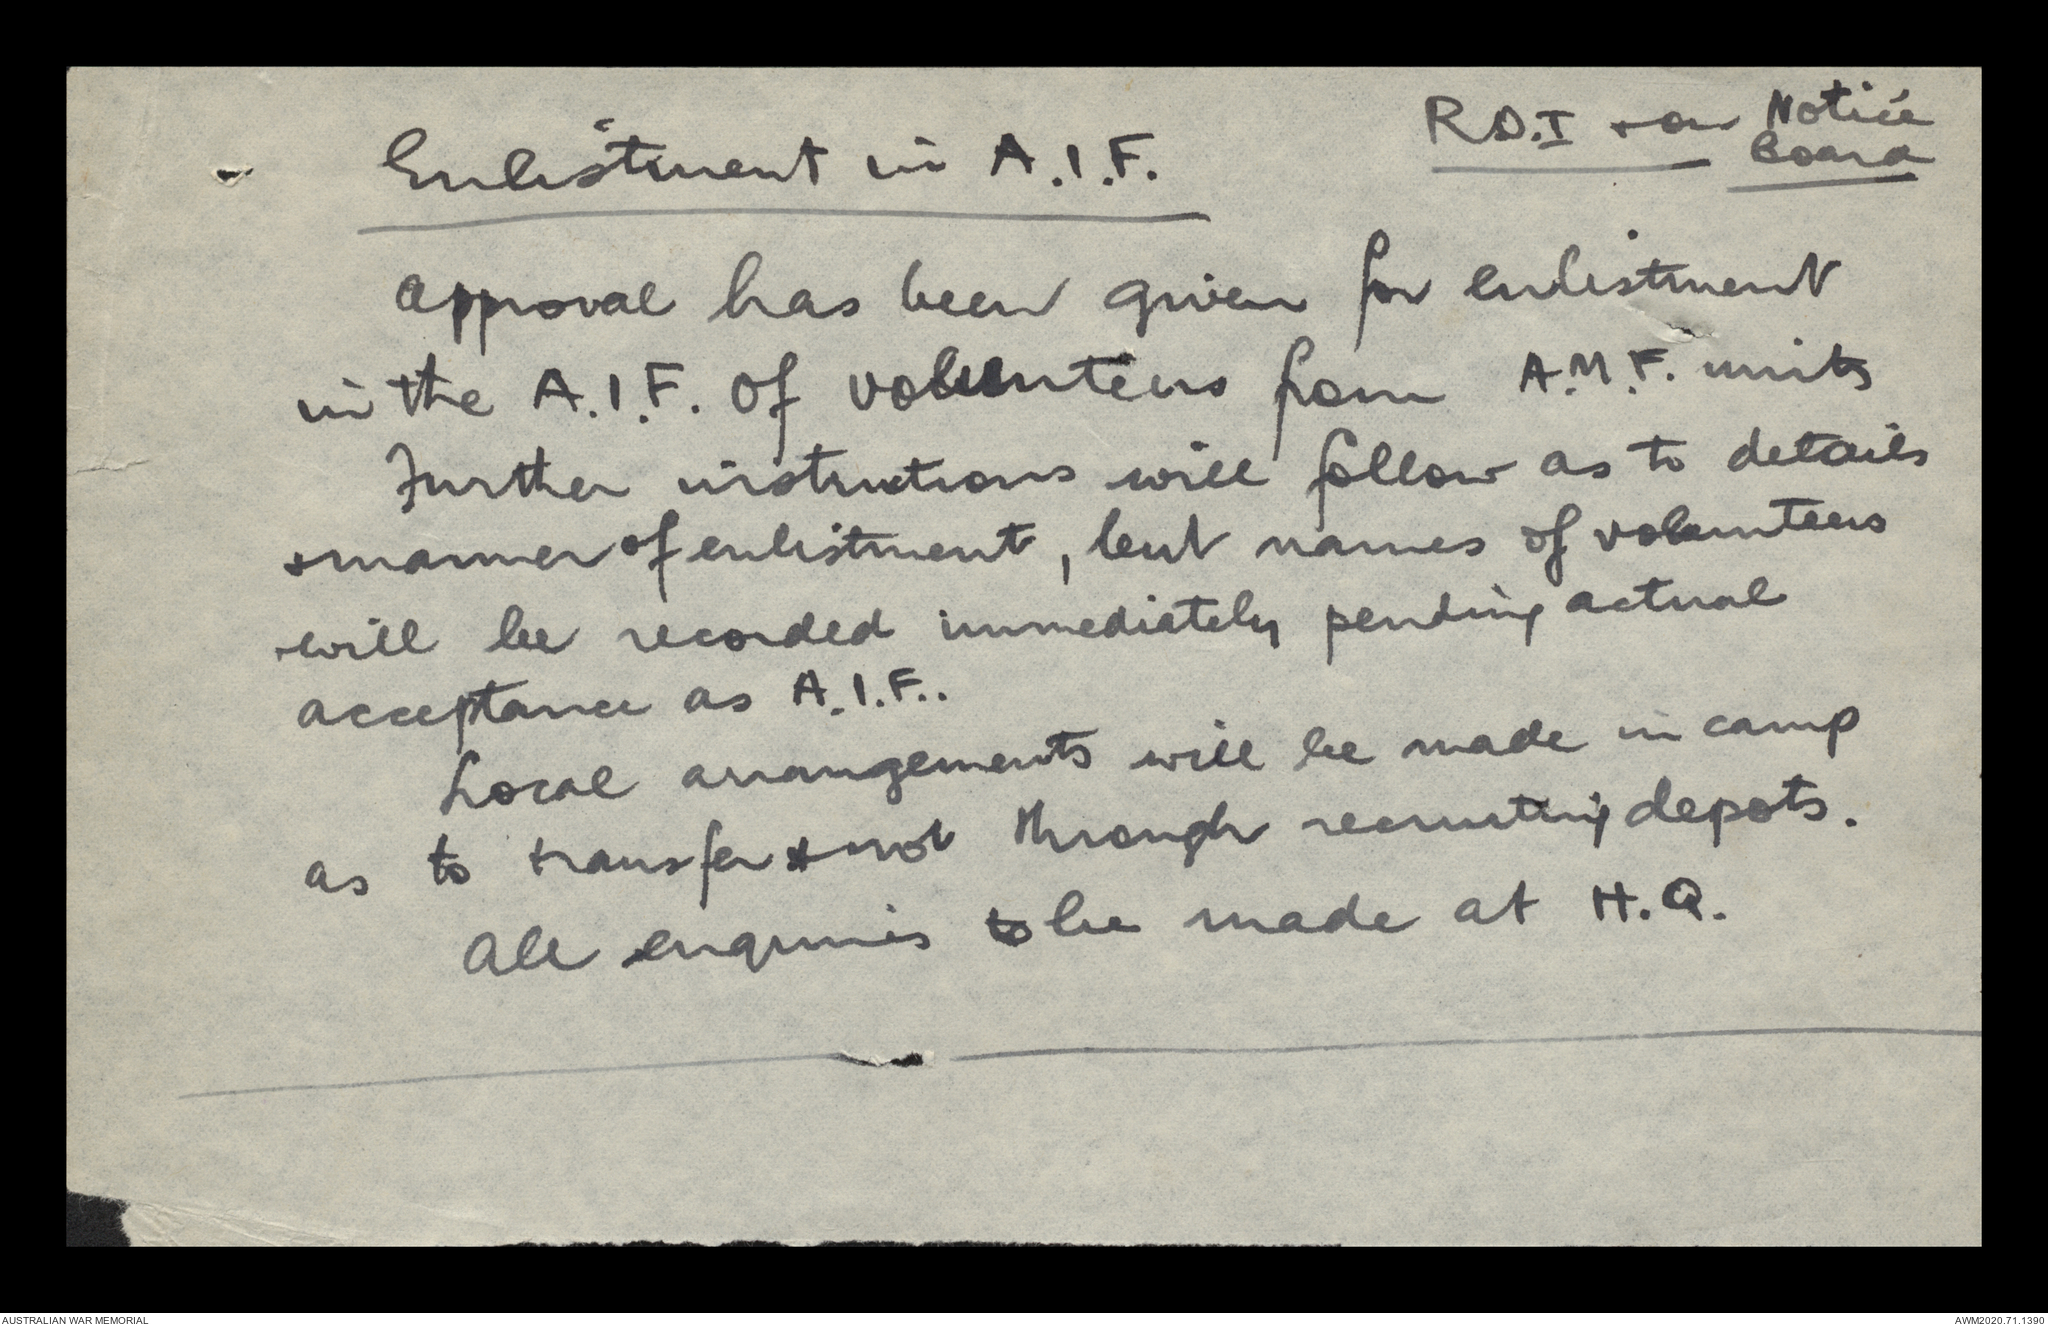 R.D.I + on Notice
Board
Enlistment in A.I.F.
Approval has been given for enlistment
in the A.I.F. of volunteers from A.M.F. units
Further instructions will follow as to details
+ manner of enlistment, but names of volunteers
will be recorded immediately pending actual
acceptance as A.I.F..
Local arrangements will be made in camp
as to transfer + not through recruiting depots.
All enquiries to be made at H.Q.
AUSTRALIAN WAR MEMORIAL
AWM2020.71.1390